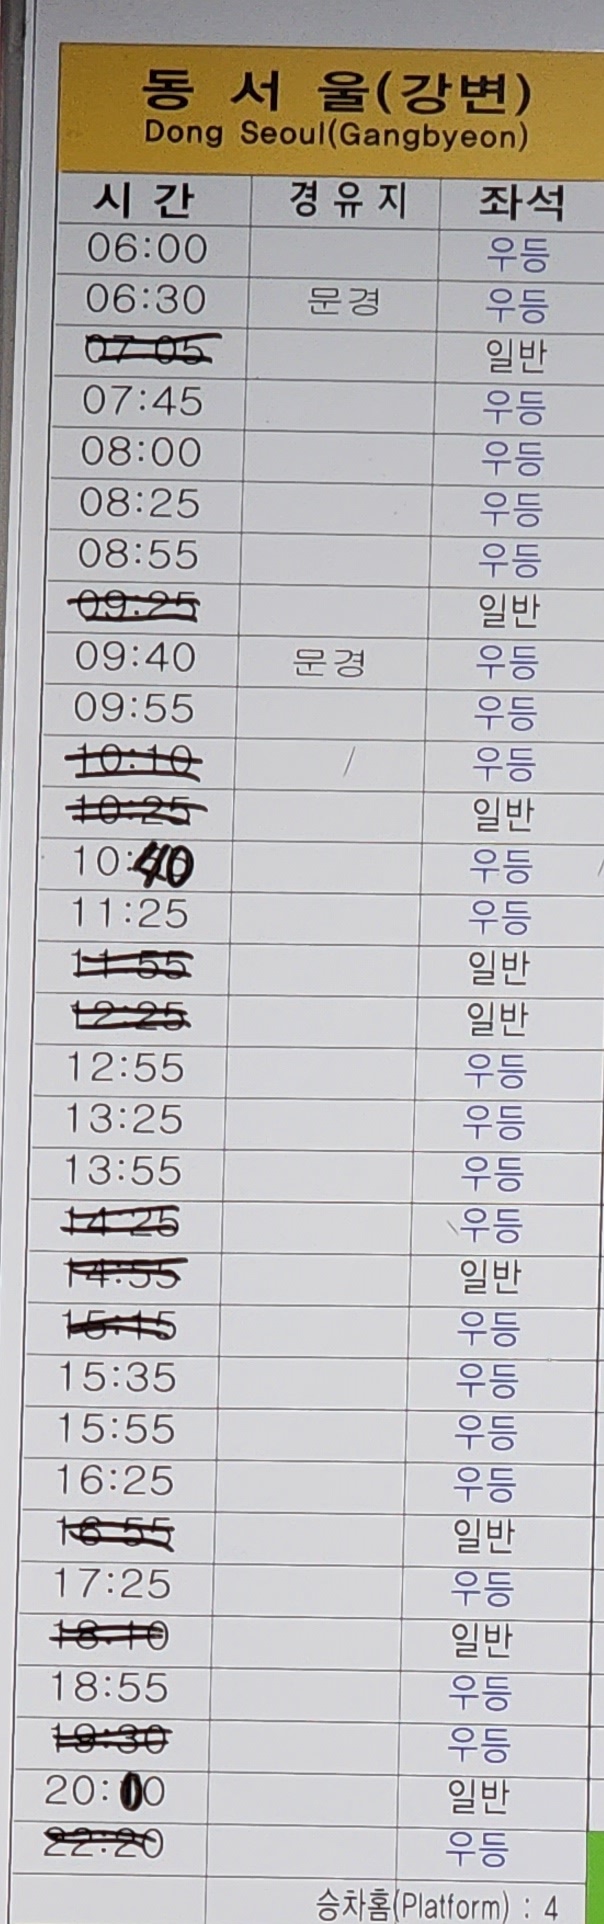 동 서 울(강변)
Dong Seoul(Gangbyeon)
시 간 경 유 지 좌석
06:00 우등
06:30 문경 우등
07:05 일반
07:45 우등
08:00 우등
08:25 우등
08:55 우등
09:25 일반
09:40 문경 우등
09:55 우등
10:10 우등
10:25 일반
10:40 우등
11:25 우등
11:55 일반
12:25 일반
12:55 우등
13:25 우등
13:55 우등
14:25 우등
14:55 일반
15:15 우등
15:35 우등
15:55 우등
16:25 우등
16:55 일반
17:25 우등
18:10 일반
18:55 우등
19:30 우등
20:00 일반
22:20 우등
승차홈(Platform) : 4